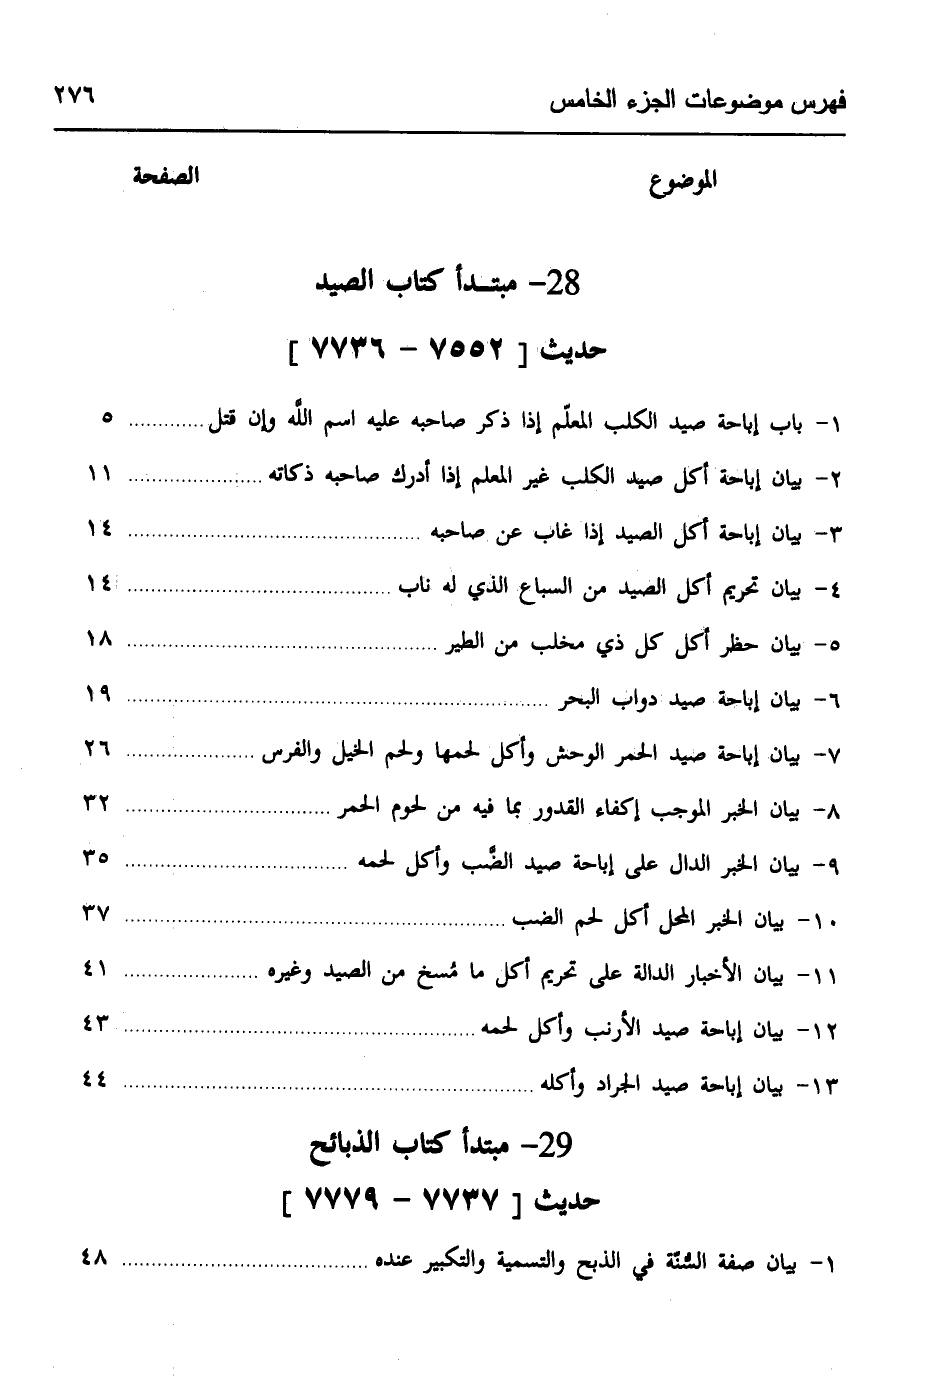 فهرس موضوعات الجزء الخامس ٢٧٦
الموضوع الصفحة
28- مبتدأ كتاب الصيد
حديث [ ٧٥٥٢ - ٧٧٣٦ ]
١- باب إباحة صيد الكلب المعلّم إذا ذكر صاحبه عليه اسم اللَّه وإن قتل ............. ٥
٢- بيان إباحة أكل صيد الكلب غير المعلم إذا أدرك صاحبه ذكاته ....................... ١١
٣- بيان إباحة أكل الصيد إذا غاب عن صاحبه ................................................ ١٤
٤- بيان تحريم أكل الصيد من السباع الذي له ناب ............................................ ١٤
٥- بيان حظر أكل كل ذي مخلب من الطير .................................................... ١٨
٦- بيان إباحة صيد دواب البحر ...................................................................... ١٩
٧- بيان إباحة صيد الحمر الوحش وأكل لحمها ولحم الخيل والفرس ...................... ٢٦
٨- بيان الخبر الموجب إكفاء القدور بما فيه من لحوم الحمر .................................. ٣٢
٩- بيان الخبر الدال على إباحة صيد الضَّب وأكل لحمه ..................................... ٣٥
١٠- بيان الخبر المحل أكل لحم الضب ............................................................... ٣٧
١١- بيان الأخبار الدالة على تحريم أكل ما مُسخ من الصيد وغيره ....................... ٤١
١٢- بيان إباحة صيد الأرنب وأكل لحمه .......................................................... ٤٣
١٣- بيان إباحة صيد الجراد وأكله .................................................................... ٤٤
29- مبتدأ كتاب الذبائح
حديث [ ٧٧٣٧ - ٧٧٧٩ ]
١- بيان صفة السُّنّة في الذبح والتسمية والتكبير عنده ......................................... ٤٨